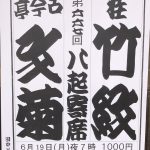 桂 竹紋
第六六七回 八起寄席
古今亭 文菊
6月19日(月)夜7時 1000円